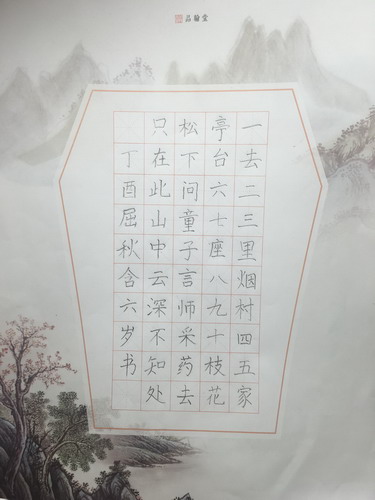 品翰堂
一去二三里烟村四五家
亭台六七座八九十枝花
松下问童子言师采药去
只在此山中云深不知处
丁酉屈秋含六岁书